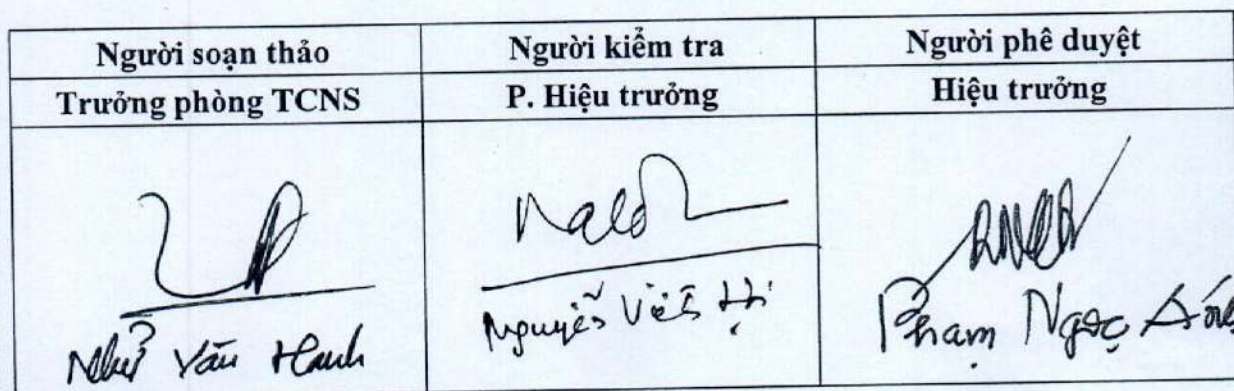 Người soạn thảo Người kiểm tra Người phê duyệt
Trưởng phòng TCNS P. Hiệu trưởng Hiệu trưởng
Văn Nguyễn Viết Phạm Ngọc